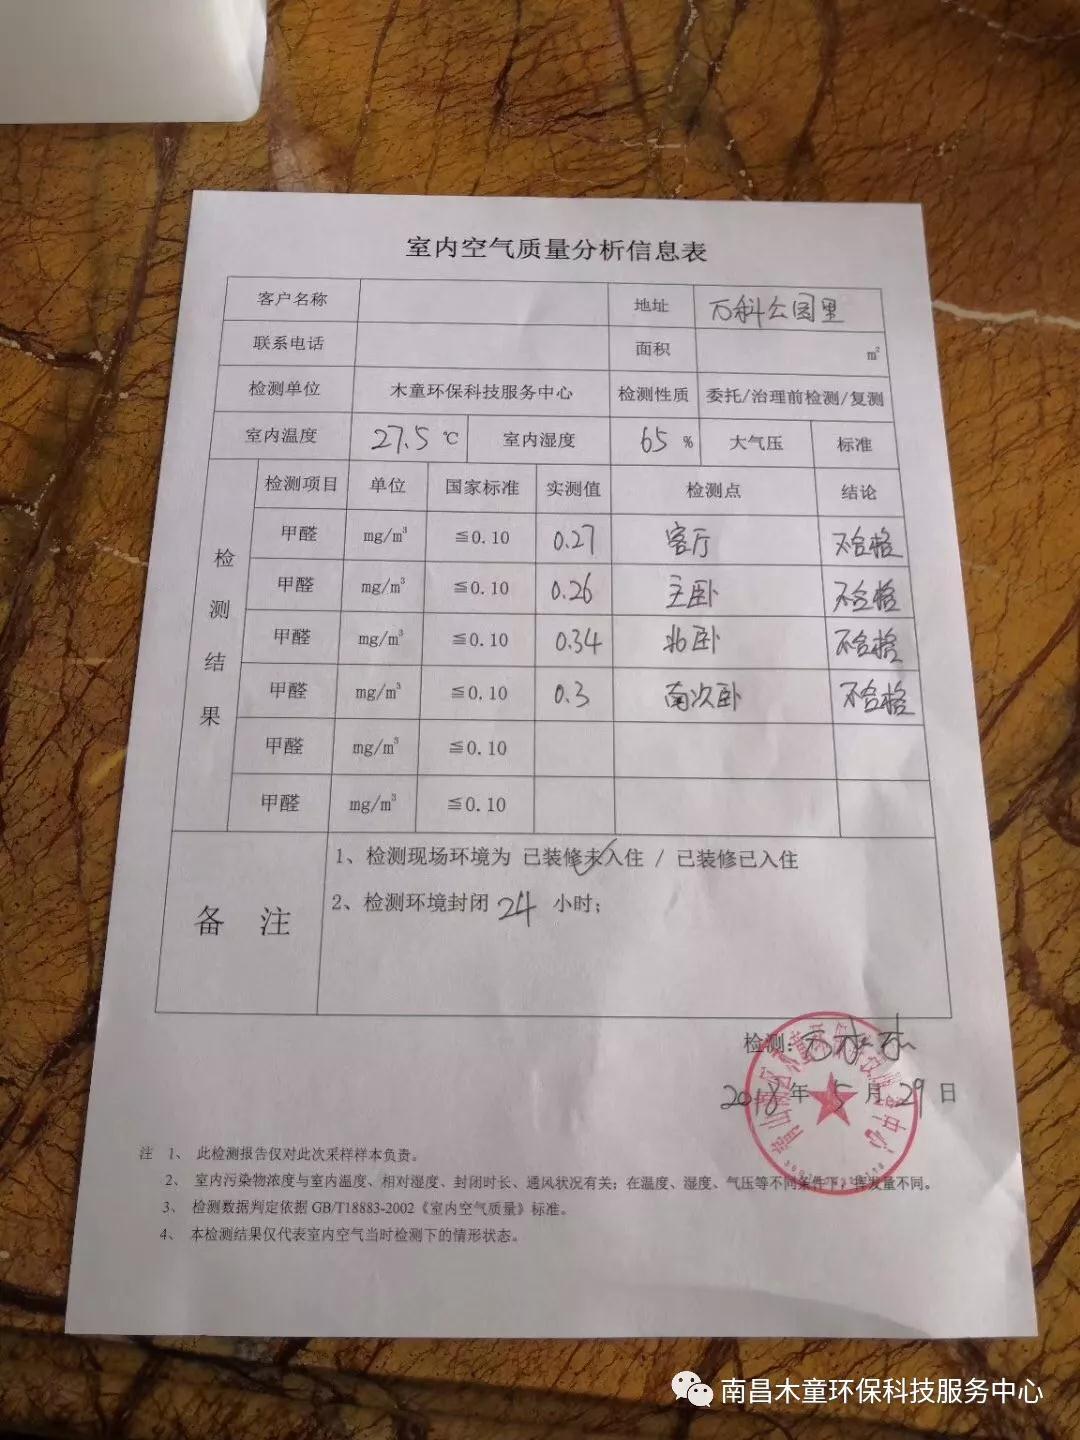 室内空气质量分析信息表
客户名称 地址 万科公园里
联系电话 面积 m²
检测单位 木童环保科技服务中心 检测性质 委托/治理前检测/复测
室内温度 27.5 ℃ 室内湿度 65 % 大气压 标准
检测结果
检测项目 单位 国家标准 实测值 检测点 结论
甲醛 mg/m³ ≦0.10 0.27 客厅 不合格
甲醛 mg/m³ ≦0.10 0.26 主卧 不合格
甲醛 mg/m³ ≦0.10 0.34 北卧 不合格
甲醛 mg/m³ ≦0.10 0.3 南次卧 不合格
甲醛 mg/m³ ≦0.10
甲醛 mg/m³ ≦0.10
备 注
1、检测现场环境为 已装修未入住 / 已装修已入住
2、检测环境封闭 24 小时；
检测：
2018 年 5 月 29 日
注 1、 此检测报告仅对此次采样样本负责。
2、 室内污染物浓度与室内温度、相对湿度、封闭时长、通风状况有关；在温度、湿度、气压等不同条件下，挥发量不同。
3、 检测数据判定依据 GB/T18883-2002《室内空气质量》标准。
4、 本检测结果仅代表室内空气当时检测下的情形状态。
南昌木童环保科技服务中心